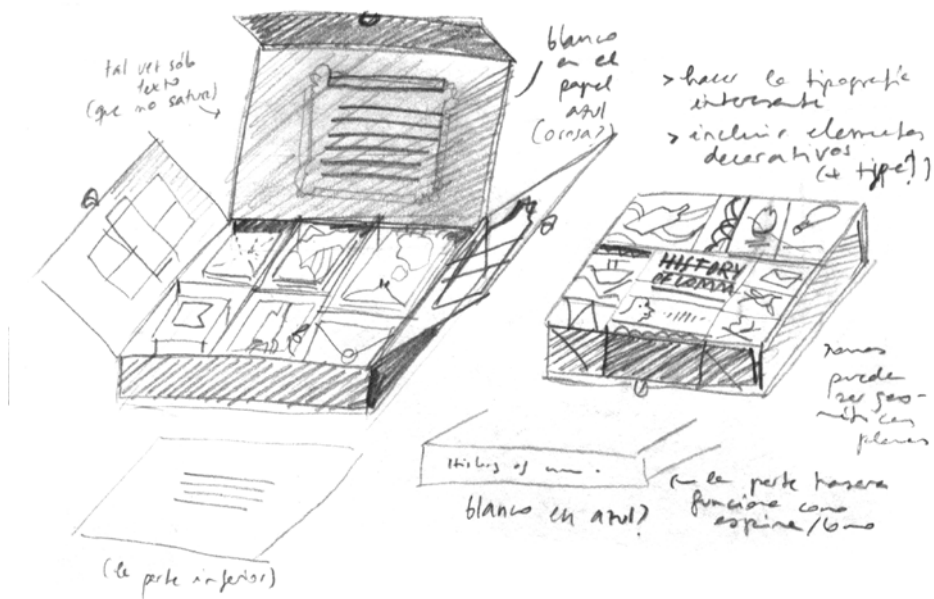 tal vez sólo
texto
(que no satura)
blanco
en el
papel
azul
(o rosa?)
> hacer la tipografía
interesante
> incluir elementos
decorativos
(+ type?)
HISTORY
OF COMM
zonas
pueden
ser geo-
métricas
planas
History of
blanco en azul?
la parte trasera
funciona como
espina/lomo
(la parte inferior)